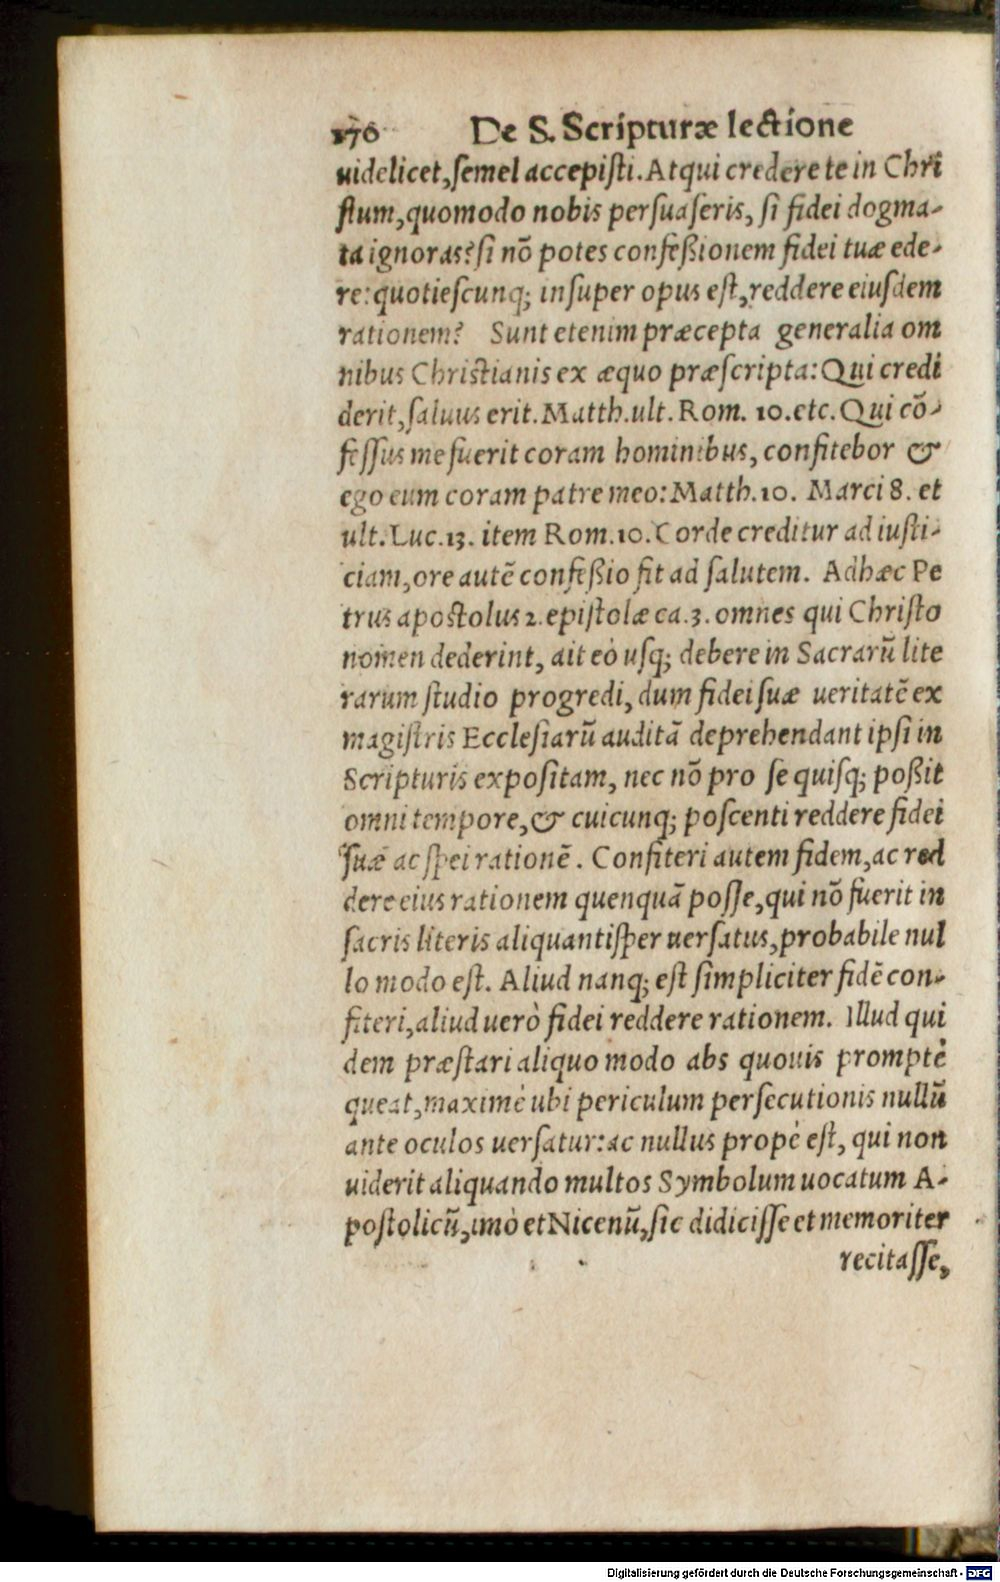 170 De S. Scripturæ lectione
uidelicet, semel accepisti. Atqui credere te in Chri
stum, quomodo nobis persuaseris, si fidei dogma-
ta ignoras? si nõ potes confeßionem fidei tuæ ede-
re: quotiescunq; insuper opus est, reddere eiusdem
rationem? Sunt etenim præcepta generalia om
nibus Christianis ex æquo præscripta: Qui credi
derit, saluus erit. Matth. ult. Rom. 10. etc. Qui cõ-
fessus me fuerit coram hominibus, confitebor &
ego eum coram patre meo: Matth. 10. Marci 8. et
ult. Luc. 13. item Rom. 10. Corde creditur ad iusti-
ciam, ore autẽ confeßio fit ad salutem. Adhæc Pe
trus apostolus 2. epistolæ ca. 3. omnes qui Christo
nomen dederint, ait eò usq; debere in Sacrarũ lite
rarum studio progredi, dum fidei suæ ueritatẽ ex
magistris Ecclesiarũ auditã deprehendant ipsi in
Scripturis expositam, nec nõ pro se quisq; poßit
omni tempore, & cuicunq; poscenti reddere fidei
suæ ac spei rationẽ. Confiteri autem fidem, ac red
dere eius rationem quenquã posse, qui nõ fuerit in
sacris literis aliquantisper uersatus, probabile nul
lo modo est. Aliud nanq; est simpliciter fidẽ con-
fiteri, aliud uerò fidei reddere rationem. Illud qui
dem præstari aliquo modo abs quouis promptè
queat, maximè ubi periculum persecutionis nullũ
ante oculos uersatur: ac nullus propè est, qui non
uiderit aliquando multos Symbolum uocatum A-
postolicũ, imò et Nicenũ, sic didicisse et memoriter
recitasse,
Digitalisierung gefördert durch die Deutsche Forschungsgemeinschaft - DFG